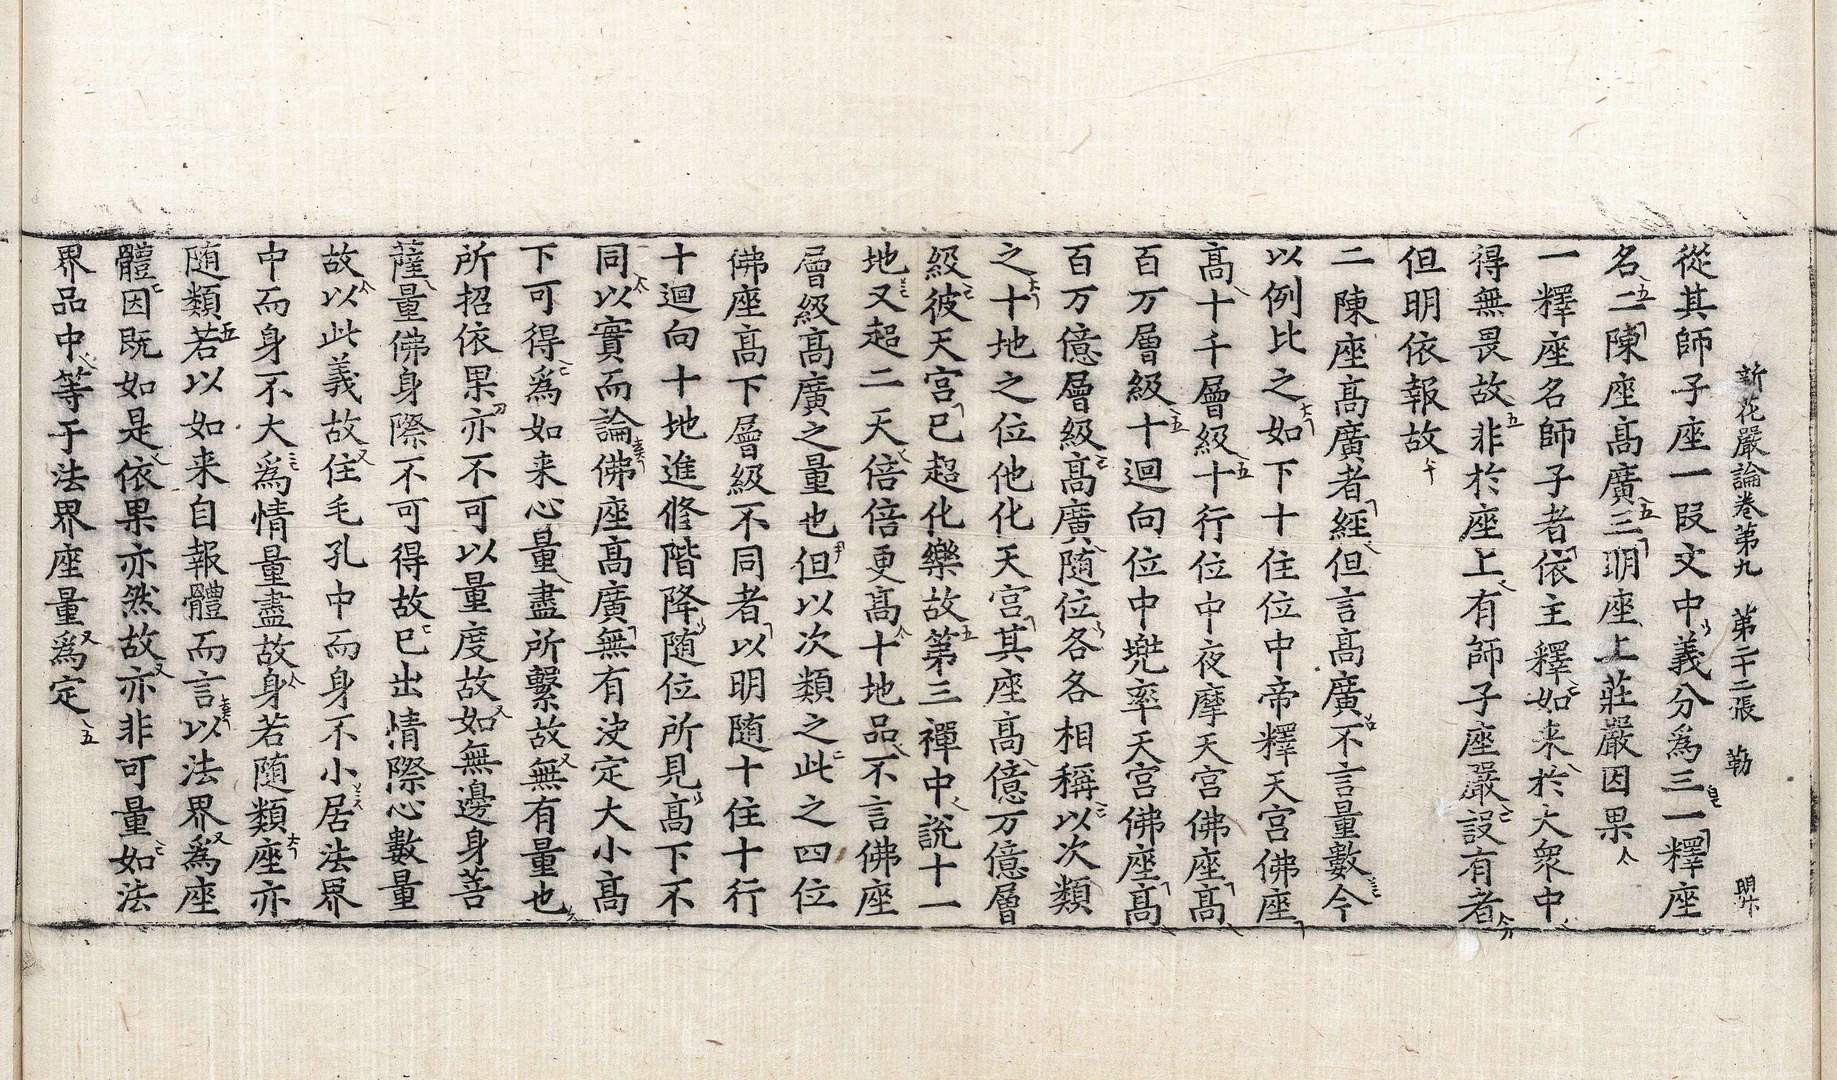 新花嚴論卷第九　第二十二張　勒
從其師子座一段文中義分爲三一釋座
名二陳座高廣三明座上莊嚴因果
一釋座名師子者依主釋如来於大衆中
得無畏故非於座上有師子座嚴設有者
但明依報故
二陳座高廣者經但言高廣不言量數今
以例比之如下十住位中帝釋天宮佛座
高十千層級十行位中夜摩天宮佛座高
百万層級十迴向位中兠率天宮佛座高
百万億層級高廣随位各各相稱以次類
之十地之位他化天宮其座高億万億層
級彼天宮已超化樂故第三禪中說十一
地又超二天倍倍更高十地品不言佛座
層級高廣之量也但以次類之此之四位
佛座高下層級不同者以明随十住十行
十迴向十地進修階降随位所見高下不
同以實而論佛座高廣無有決定大小高
下可得爲如来心量盡所繫故無有量也
所招依果亦不可以量度故如無邊身菩
薩量佛身際不可得故已出情際心數量
故以此義故住毛孔中而身不小居法界
中而身不大爲情量盡故身若随類座亦
随類若以如来自報體而言以法界爲座
體因既如是依果亦然故亦非可量如法
界品中等于法界座量爲定